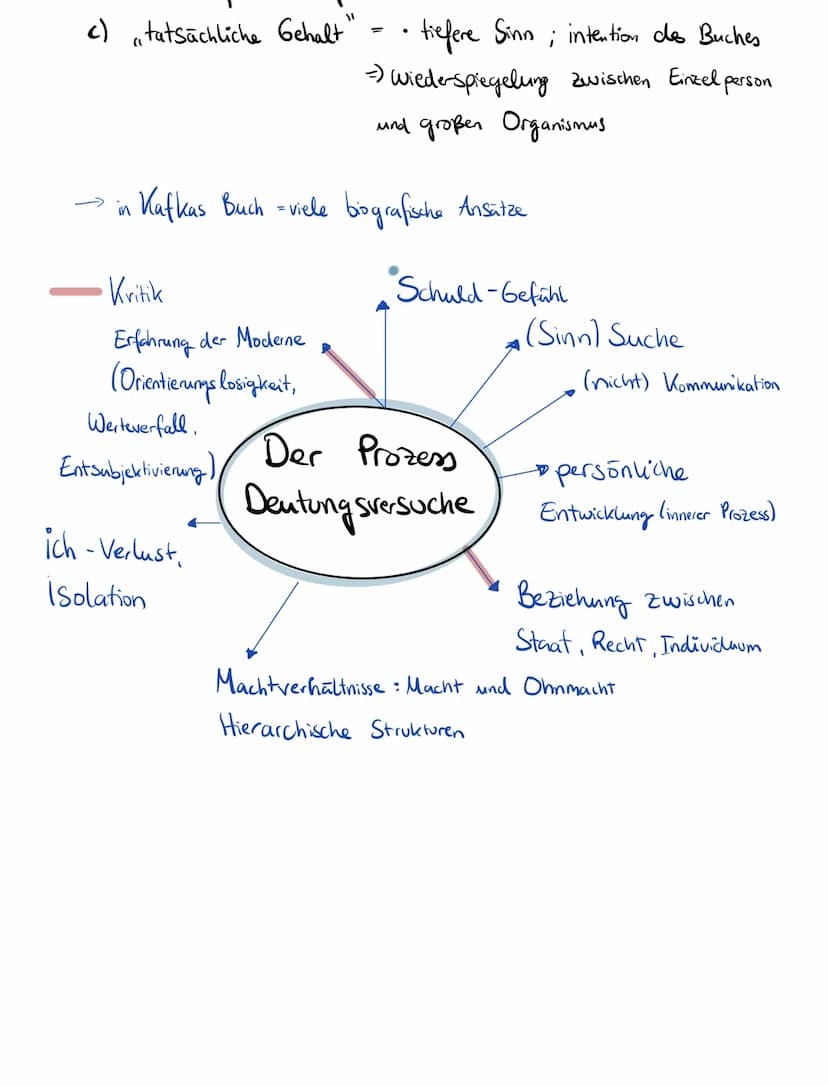 c) „tatsächliche Gehalt" = · tiefere Sinn ; intention des Buches
=> Wiederspiegelung zwischen Einzelperson
und großen Organismus
→ in Kafkas Buch = viele biografische Ansätze
Kritik
Schuld-Gefühl
Erfahrung der Moderne
(Orientierungslosigkeit,
Werteverfall,
Entsubjektivierung)
(Sinn) Suche
(nicht) Kommunikation
Der Prozess
Deutungsversuche
persönliche
Entwicklung (innerer Prozess)
ich-Verlust,
Isolation
Beziehung zwischen
Staat, Recht, Individuum
Machtverhältnisse : Macht und Ohnmacht
Hierarchische Strukturen